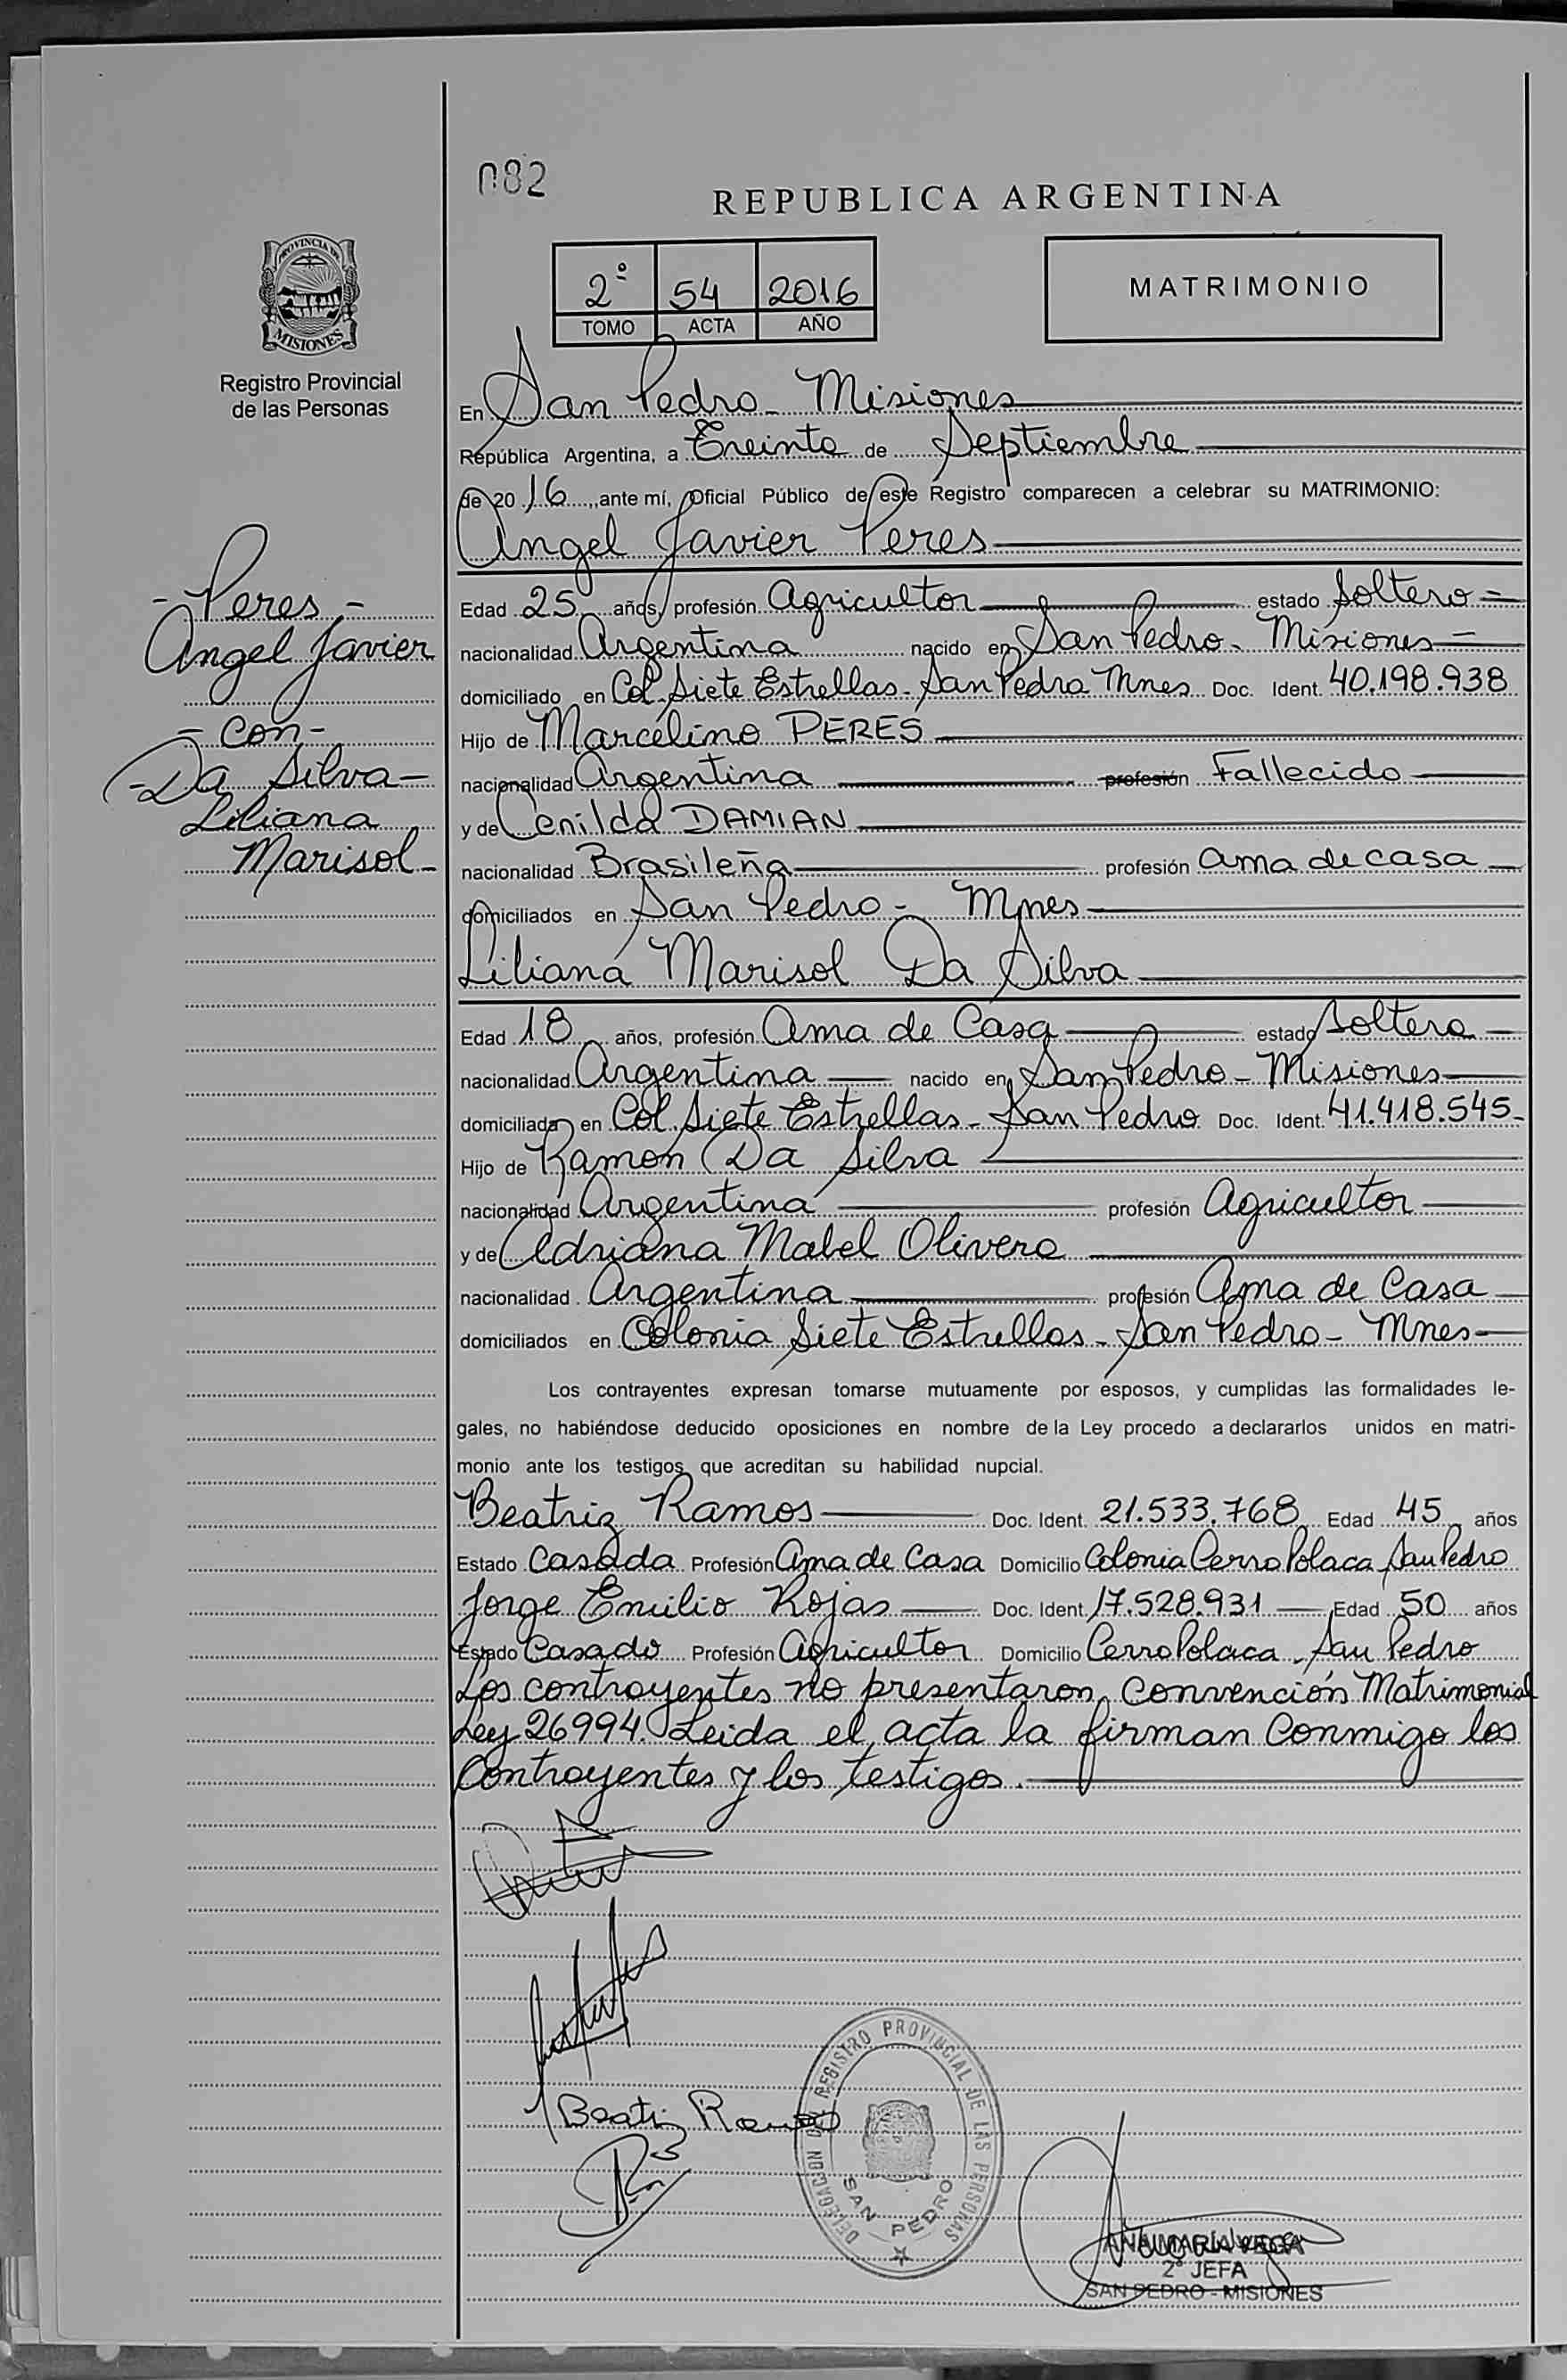 082
REPUBLICA ARGENTINA
2º 54 2016
TOMO ACTA AÑO
MATRIMONIO
PROVINCIA DE
MISIONES
Registro Provincial
de las Personas
En San Pedro - Misiones
República Argentina, a Treinta de Septiembre
de 2016, ante mí, Oficial Público de este Registro comparecen a celebrar su MATRIMONIO:
Angel Javier Peres
- Peres -
Angel Javier
- Con -
- Da Silva -
Liliana
Marisol -
Edad 25 años, profesión Agricultor estado Soltero -
nacionalidad Argentina nacido en San Pedro - Misiones -
domiciliado en Col. Siete Estrellas - San Pedro Mnes Doc. Ident. 40.198.938
Hijo de Marcelino PERES
nacionalidad Argentina profesión Fallecido
y de Cenilda DAMIAN
nacionalidad Brasileña profesión ama de casa
domiciliados en San Pedro - Mnes
Liliana Marisol Da Silva
Edad 18 años, profesión Ama de Casa estado Soltera
nacionalidad Argentina nacido en San Pedro - Misiones
domiciliada en Col. Siete Estrellas - San Pedro Doc. Ident. 41.418.545-
Hijo de Ramon Da Silva
nacionalidad Argentina profesión Agricultor
y de Adriana Mabel Olivera
nacionalidad Argentina profesión Ama de Casa
domiciliados en Colonia Siete Estrellas - San Pedro - Mnes
Los contrayentes expresan tomarse mutuamente por esposos, y cumplidas las formalidades le-
gales, no habiéndose deducido oposiciones en nombre de la Ley procedo a declararlos unidos en matri-
monio ante los testigos que acreditan su habilidad nupcial.
Beatriz Ramos Doc. Ident. 21.533.768 Edad 45 años
Estado Casada Profesión Ama de Casa Domicilio Colonia Cerro Polaca San Pedro
Jorge Emilio Rojas Doc. Ident. 17.528.931 Edad 50 años
Estado Casado Profesión Agricultor Domicilio Cerro Polaca - San Pedro
Los contrayentes no presentaron Convención Matrimonial
Ley 26994. Leida el acta la firman Conmigo los
Contrayentes y los testigos.
Beatriz Ramos
DELEGACION DEL REGISTRO PROVINCIAL DE LAS PERSONAS
SAN PEDRO
ANA MARIA VEGA
2ª JEFA
SAN PEDRO - MISIONES